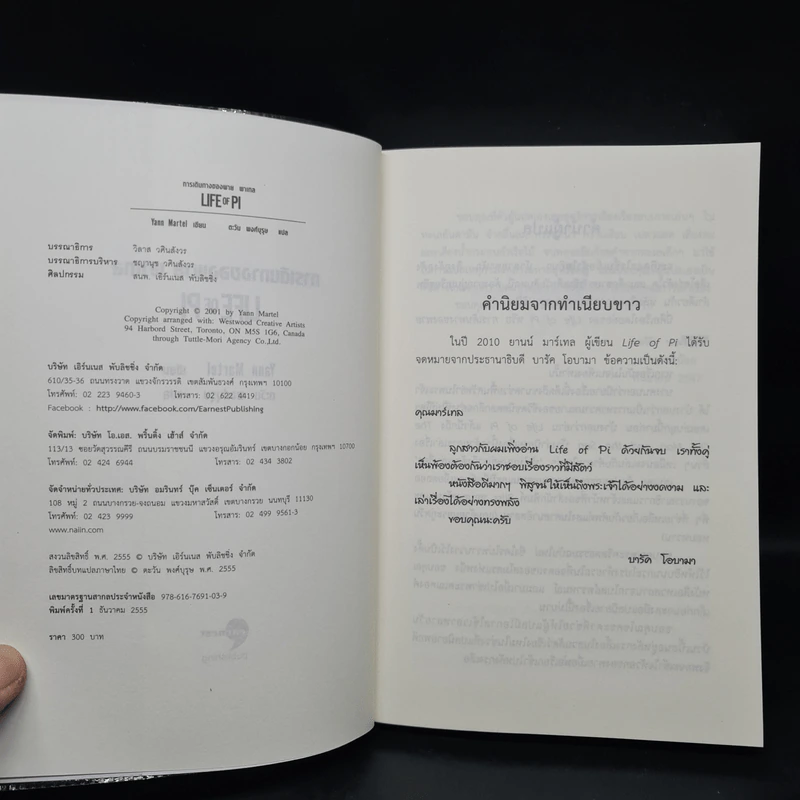 การเดินทางของพาย พาเทล
LIFE OF PI
Yann Martel เขียน ตะวัน พงศ์บุรุษ แปล
บรรณาธิการ วิลาส วศินสังวร
บรรณาธิการบริหาร ชญานุช วศินสังวร
ศิลปกรรม สนพ. เอิร์นเนส พับลิชชิ่ง
Copyright © 2001 by Yann Martel
Copyright arranged with: Westwood Creative Artists
94 Harbord Street, Toronto, ON M5S 1G6, Canada
through Tuttle-Mori Agency Co.,Ltd.
บริษัท เอิร์นเนส พับลิชชิ่ง จำกัด
610/35-36 ถนนทรงวาด แขวงจักรวรรดิ เขตสัมพันธวงศ์ กรุงเทพฯ 10100
โทรศัพท์: 02 223 9460-3 โทรสาร: 02 622 4419
Facebook : http://www.facebook.com/EarnestPublishing
จัดพิมพ์: บริษัท โอ.เอส. พริ้นติ้ง เฮ้าส์ จำกัด
113/13 ซอยวัดสุวรรณคีรี ถนนบรมราชชนนี แขวงอรุณอัมรินทร์ เขตบางกอกน้อย กรุงเทพฯ 10700
โทรศัพท์: 02 424 6944 โทรสาร: 02 434 3802
จัดจำหน่ายทั่วประเทศ: บริษัท อมรินทร์ บุ๊ค เซ็นเตอร์ จำกัด
108 หมู่ 2 ถนนบางกรวย-จงถนอม แขวงมหาสวัสดิ์ เขตบางกรวย นนทบุรี 11130
โทรศัพท์: 02 423 9999 โทรสาร: 02 499 9561-3
www.naiin.com
สงวนลิขสิทธิ์ พ.ศ. 2555 © บริษัท เอิร์นเนส พับลิชชิ่ง จำกัด
ลิขสิทธิ์บทแปลภาษาไทย © ตะวัน พงศ์บุรุษ พ.ศ. 2555
เลขมาตรฐานสากลประจำหนังสือ 978-616-7691-03-9
พิมพ์ครั้งที่ 1 ธันวาคม 2555
ราคา 300 บาท
คำนิยมจากทำเนียบขาว
ในปี 2010 ยานน์ มาร์เทล ผู้เขียน Life of Pi ได้รับ
จดหมายจากประธานาธิบดี บารัค โอบามา ข้อความเป็นดังนี้:
คุณมาร์เทล
ลูกสาวกับผมเพิ่งอ่าน Life of Pi ด้วยกันจบ เราทั้งคู่
เห็นพ้องต้องกันว่าเราชอบเรื่องราวที่มีสัตว์
หนังสือดีมากๆ พิสูจน์ให้เห็นถึงพระเจ้าได้อย่างงดงาม และ
เล่าเรื่องได้อย่างทรงพลัง
ขอบคุณนะครับ
บารัค โอบามา